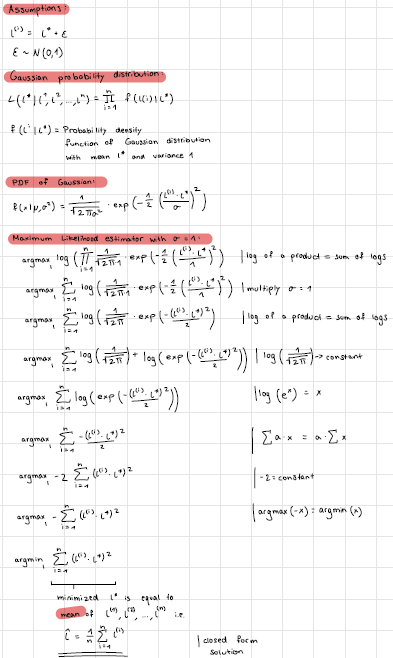 Assumptions:
l⁽ⁱ⁾ = l* + ε
ε ~ N(0,1)
Gaussian probability distribution:
L(l*|l¹,l²,...,lⁿ) = ∏ⁿᵢ₌₁ f(l(i)|l*)
f(lⁱ|l*) = Probability density
function of Gaussian distribution
with mean l* and variance 1
PDF of Gaussian:
f(x|μ,σ²) = 1/√2πσ² · exp(-1/2 ((l⁽ⁱ⁾-l*)/σ)²)
Maximum Likelihood estimator with σ = 1:
argmaxₗ log(∏ⁿᵢ₌₁ 1/√2π·1 · exp(-1/2 ((l⁽ⁱ⁾-l*)/1)²) | log of a product = sum of logs
argmaxₗ Σⁿᵢ₌₁ log(1/√2π·1 · exp(-1/2 ((l⁽ⁱ⁾-l*)/1)²) | multiply σ = 1
argmaxₗ Σⁿᵢ₌₁ log(1/√2π · exp(-(l⁽ⁱ⁾-l*)²/2) | log of a product = sum of logs
argmaxₗ Σⁿᵢ₌₁ log(1/√2π) + log(exp(-(l⁽ⁱ⁾-l*)²/2)) | log(1/√2π) → constant
argmaxₗ Σⁿᵢ₌₁ log(exp(-(l⁽ⁱ⁾-l*)²/2)) | log(eˣ) = x
argmaxₗ Σⁿᵢ₌₁ -(l⁽ⁱ⁾-l*)²/2 | Σ a·x = a·Σ x
argmaxₗ -2 Σⁿᵢ₌₁ (l⁽ⁱ⁾-l*)² | -2 = constant
argmaxₗ - Σⁿᵢ₌₁ (l⁽ⁱ⁾-l*)² | argmax(-x) = argmin(x)
argminₗ Σⁿᵢ₌₁ (l⁽ⁱ⁾-l*)²
minimized l* is equal to
mean of l⁽¹⁾, l⁽²⁾, ..., l⁽ⁿ⁾ i.e.
l̂ = 1/n Σⁿᵢ₌₁ l⁽ⁱ⁾ | closed form
solution